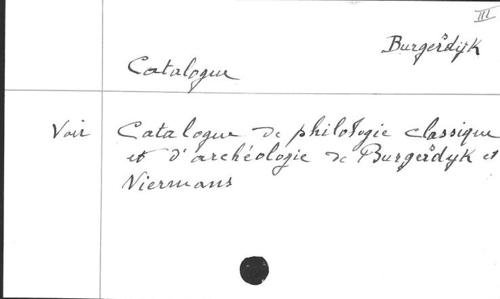 III
Burgersdijk
Catalogue
Voir Catalogue de philologie classique
et d'archéologie de Burgersdyk et
Niermans